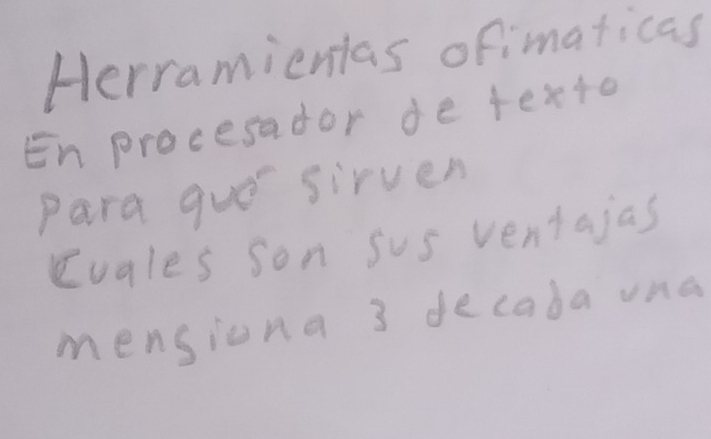 Herramientas ofimaticas
En procesador de texto
para qué sirven
Cuales son sus ventajas
mensiona 3 de cada una